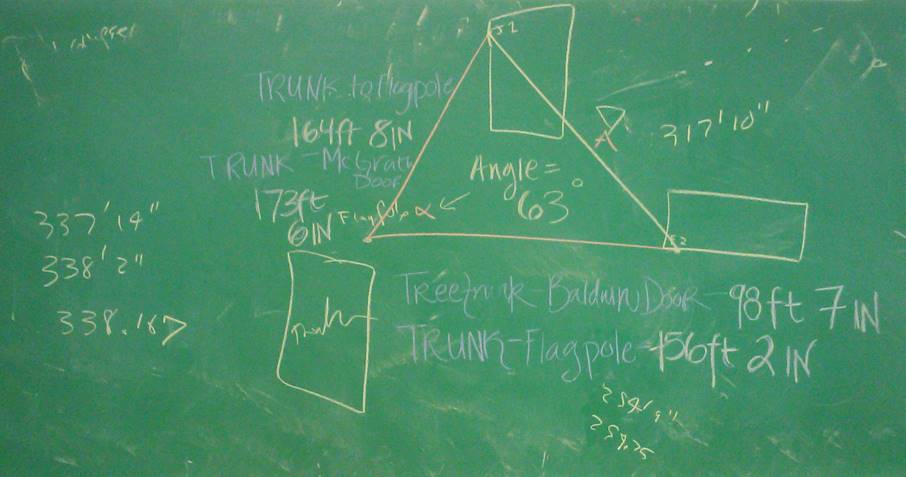 S1
TRUNK to flagpole
164ft 8IN
TRUNK - McGrath
Door
173ft
6IN
Flagpole α
Angle =
63°
A
317' 10"
337' 14"
338' 2"
338.167
Treetrunk - Baldwin Door - 98ft 7 IN
TRUNK - Flagpole - 156ft 2 IN
254' 9"